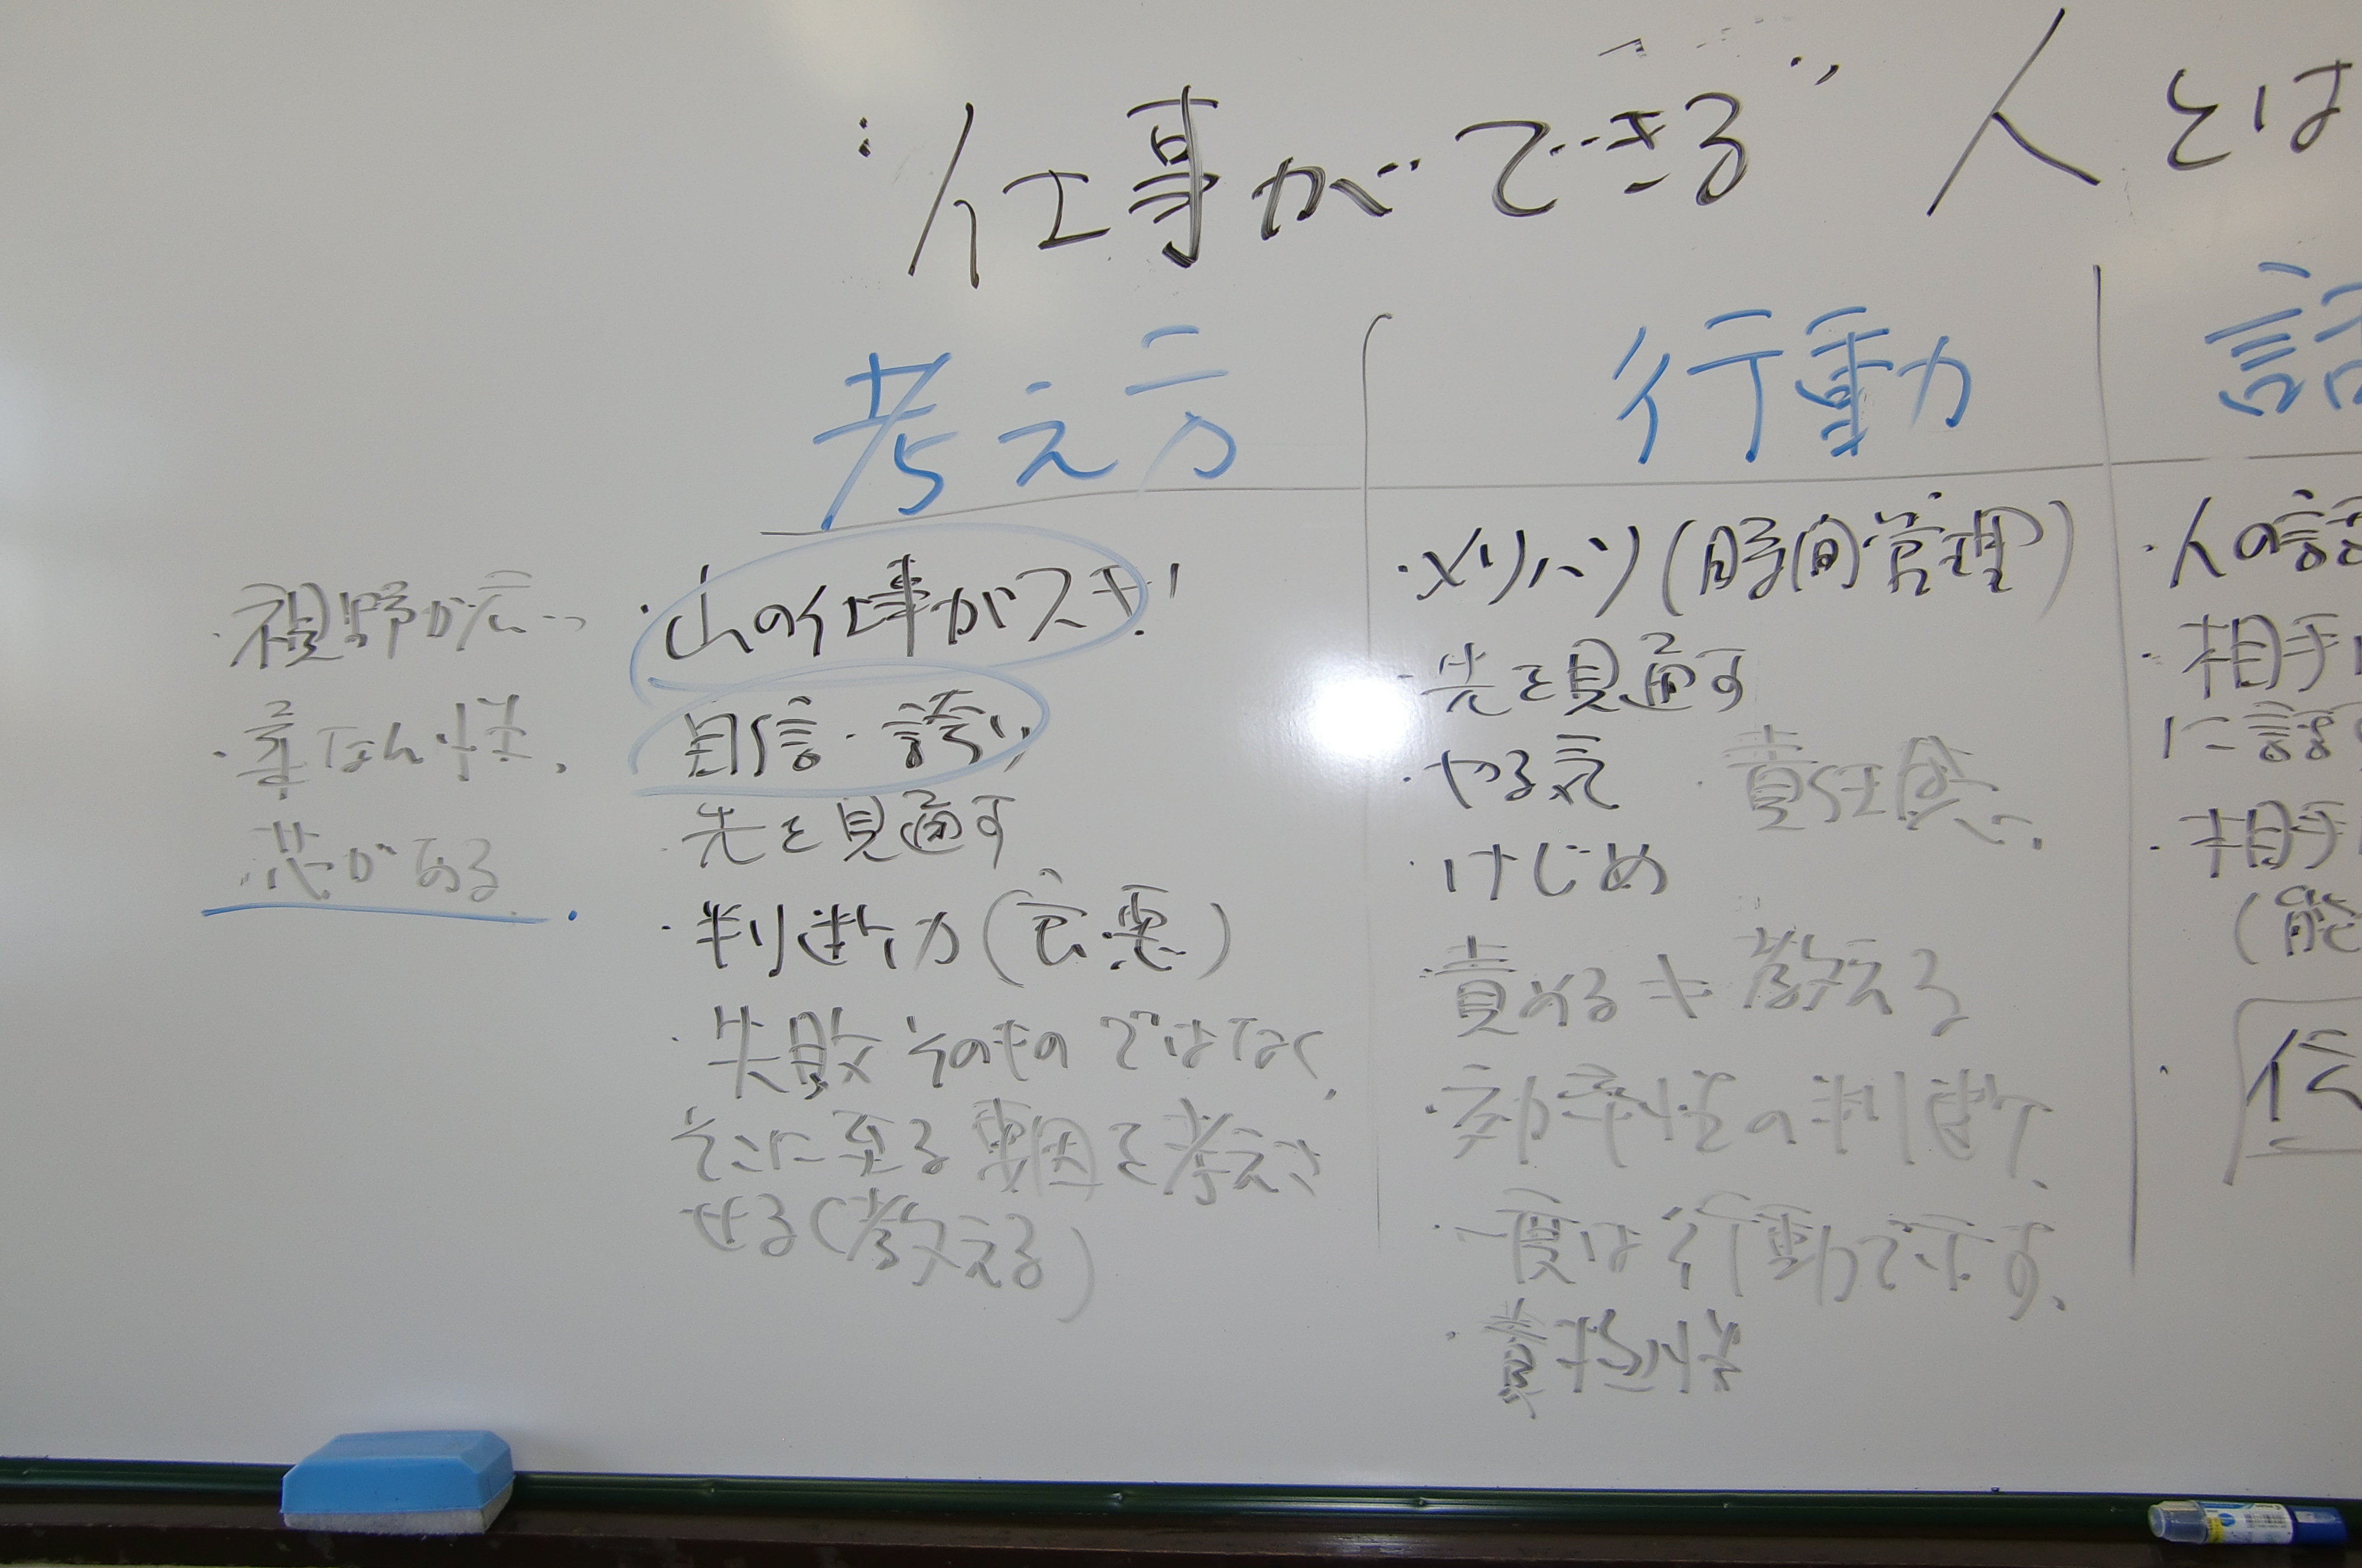 "仕事ができる" 人とは
考え方
行動
・視野が広い
・柔なん性、
・芯がある
・山の仕事がスキ!
自信・誇り
・先を見通す
・判断力(良悪)
・失敗そのものではなく、
そこに至る要因を考えさ
せる(教える)
・メリハリ(時間管理)
・先を見通す
・やる気
・責任感。
・けじめ
・責めるより教える
・効率性の判断、
・一度は行動で示す、
・人の話
・相手
に話
・相手